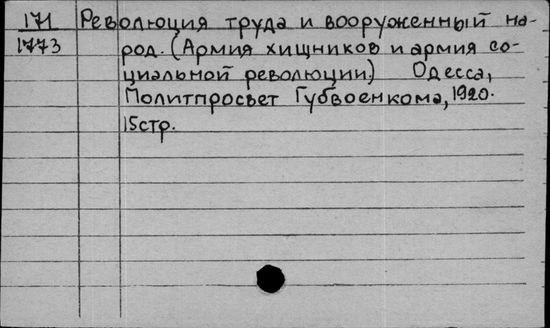 171 Революция труда и вооруженный на-
1773 род. (Армия хищников и армия со-
циальной революции) Одесса,
Политпросвет Губвоенкома, 1920.
15стр.